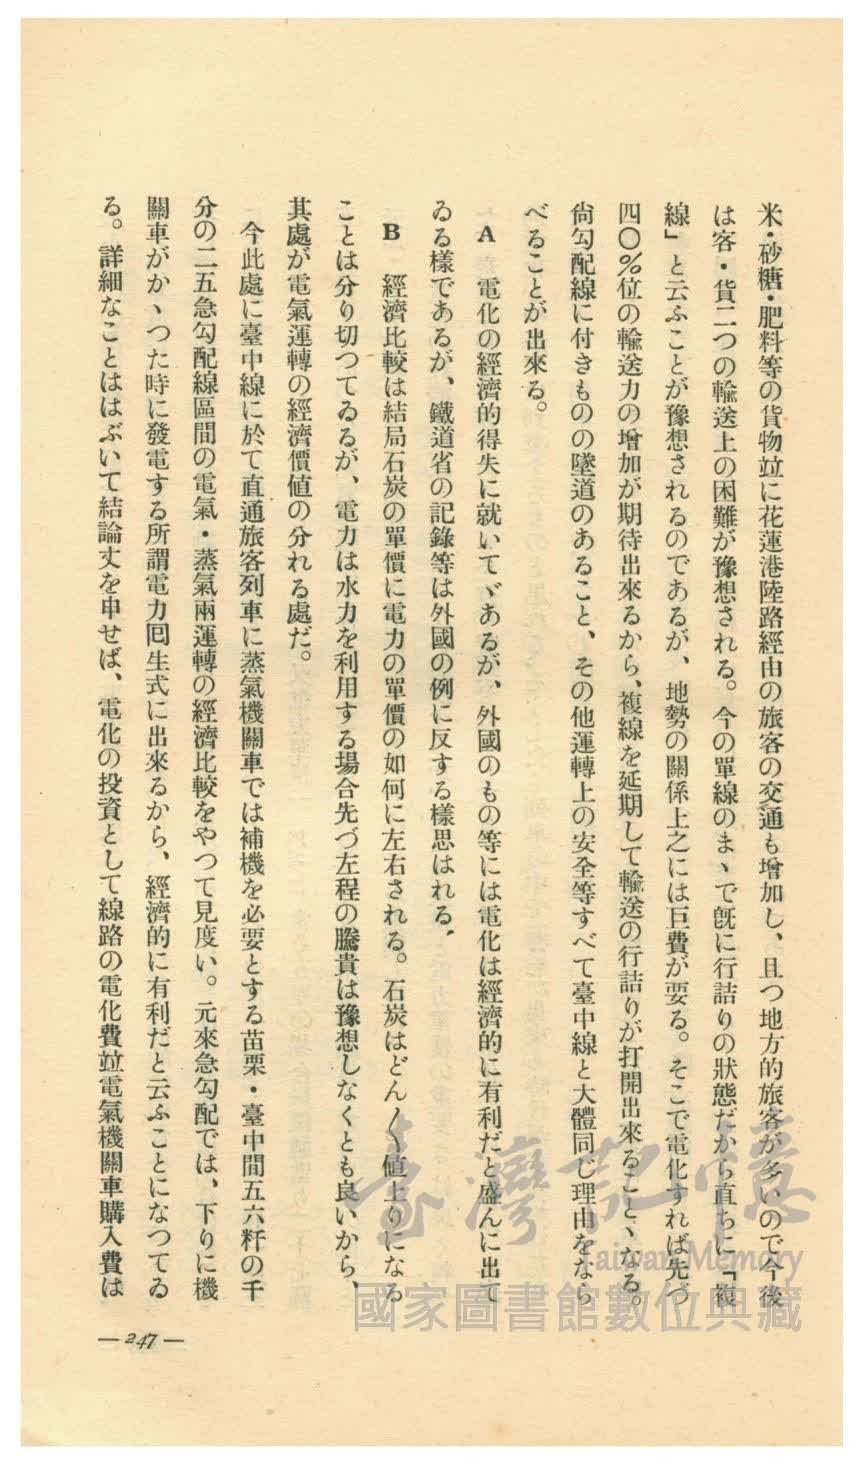 米・砂糖・肥料等の貨物竝に花蓮港陸路經由の旅客の交通も增加し、且つ地方的旅客が多いので今後
は客・貨二つの輸送上の困難が豫想される。今の單線のまゝで既に行詰りの狀態だから直ちに「複
線」と云ふことが豫想されるのであるが、地勢の關係上之には巨費が要る。そこで電化すれば先づ
四〇％位の輸送力の增加が期待出來るから、複線を延期して輸送の行詰りが打開出來ることゝなる。
尙勾配線に付きものの墜道のあること、その他運轉上の安全等すべて臺中線と大體同じ理由をなら
べることが出來る。
A 電化の經濟的得失に就いてゞあるが、外國のもの等には電化は經濟的に有利だと盛んに出て
ゐる樣であるが、鐵道省の記錄等は外國の例に反する樣思はれる。
B 經濟比較は結局石炭の單價に電力の單價の如何に左右される。石炭はどん〳〵値上りになる
ことは分り切つてゐるが、電力は水力を利用する場合先づ左程の騰貴は豫想しなくとも良いから、
其處が電氣運轉の經濟價値の分れる處だ。
今此處に臺中線に於て直通旅客列車に蒸氣機關車では補機を必要とする苗栗・臺中間五六粁の千
分の二五急勾配線區間の電氣・蒸氣兩運轉の經濟比較をやつて見度い。元來急勾配では、下りに機
關車がかゝつた時に發電する所謂電力回生式に出來るから、經濟的に有利だと云ふことになつてゐ
る。詳細なことははぶいて結論丈を申せば、電化の投資として線路の電化費竝電氣機關車購入費は
—247—
臺灣記憶
Taiwan Memory
國家圖書館數位典藏